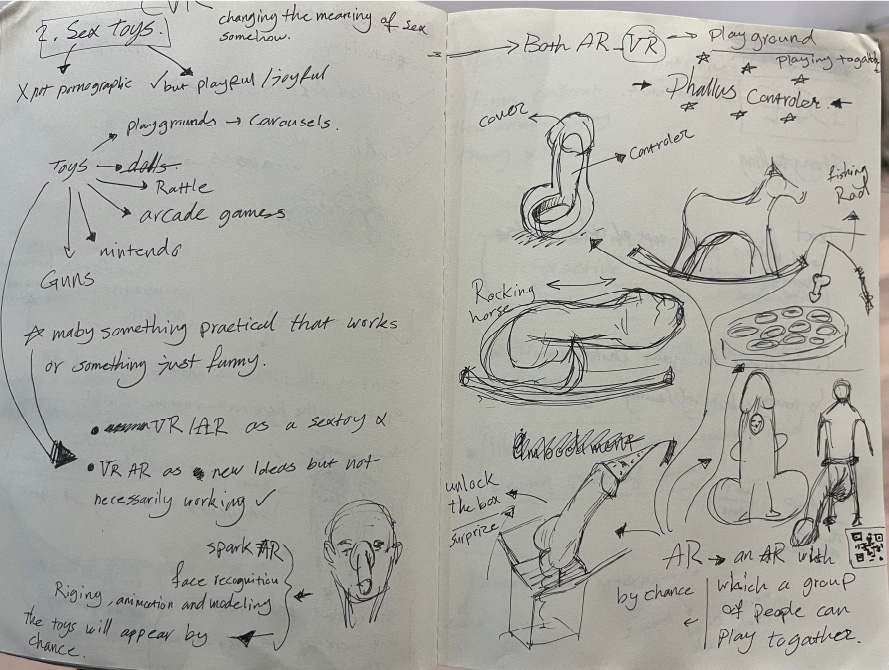 VR
2. Sex Toys.
changing the meaning of sex
somehow.
X not pornographic ✓but playful / joyful
playgrounds → Carousels.
Toys
dolls.
Rattle
arcade games
nintendo
Guns
☆ maby something practical that works
or something just funny.
• VR/AR as a sextoy α
• VR AR as new Ideas but not
necessarily working ✓
spark AR
face recognition
Riging, animation and modeling
The toys will appear by
chance.
→ Both AR - VR → Playground
Playing togather
→ Phallus Controler ←
cover
Controler
fishing
Rad
Rocking
horse
Embodiment
unlock
the box
surprize
AR → an AR with
by chance
which a group
of people can
play togather.